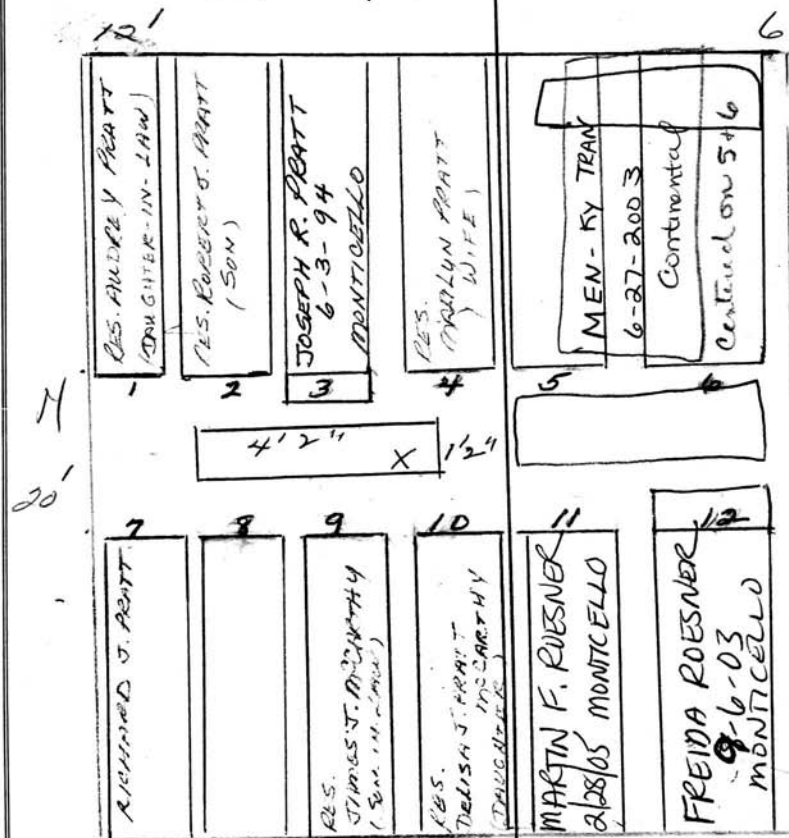 12'
6
RES. AUDREY PRATT
(DAUGHTER-IN-LAW)
RES. ROBERT J. PRATT
(SON)
JOSEPH R. PRATT
6-3-94
MONTICELLO
RES.
MARILYN PRATT
WIFE)
MEN-KY TRAN
6-27-2003
Continental
Centered on 5+6
1
2
3
4
5
6
4' 2"
X
1'2"
20'
7
8
9
10
11
12
RICHARD J. PRATT
RES.
JAMES J. McCARTHY
(SON-IN-LAW)
RES.
DENISA J. PRATT
McCARTHY
(DAUGHTER)
MARTIN F. ROESNER
2/28/05 MONTICELLO
FREIDA ROESNER
-6-03
MONTICELLO